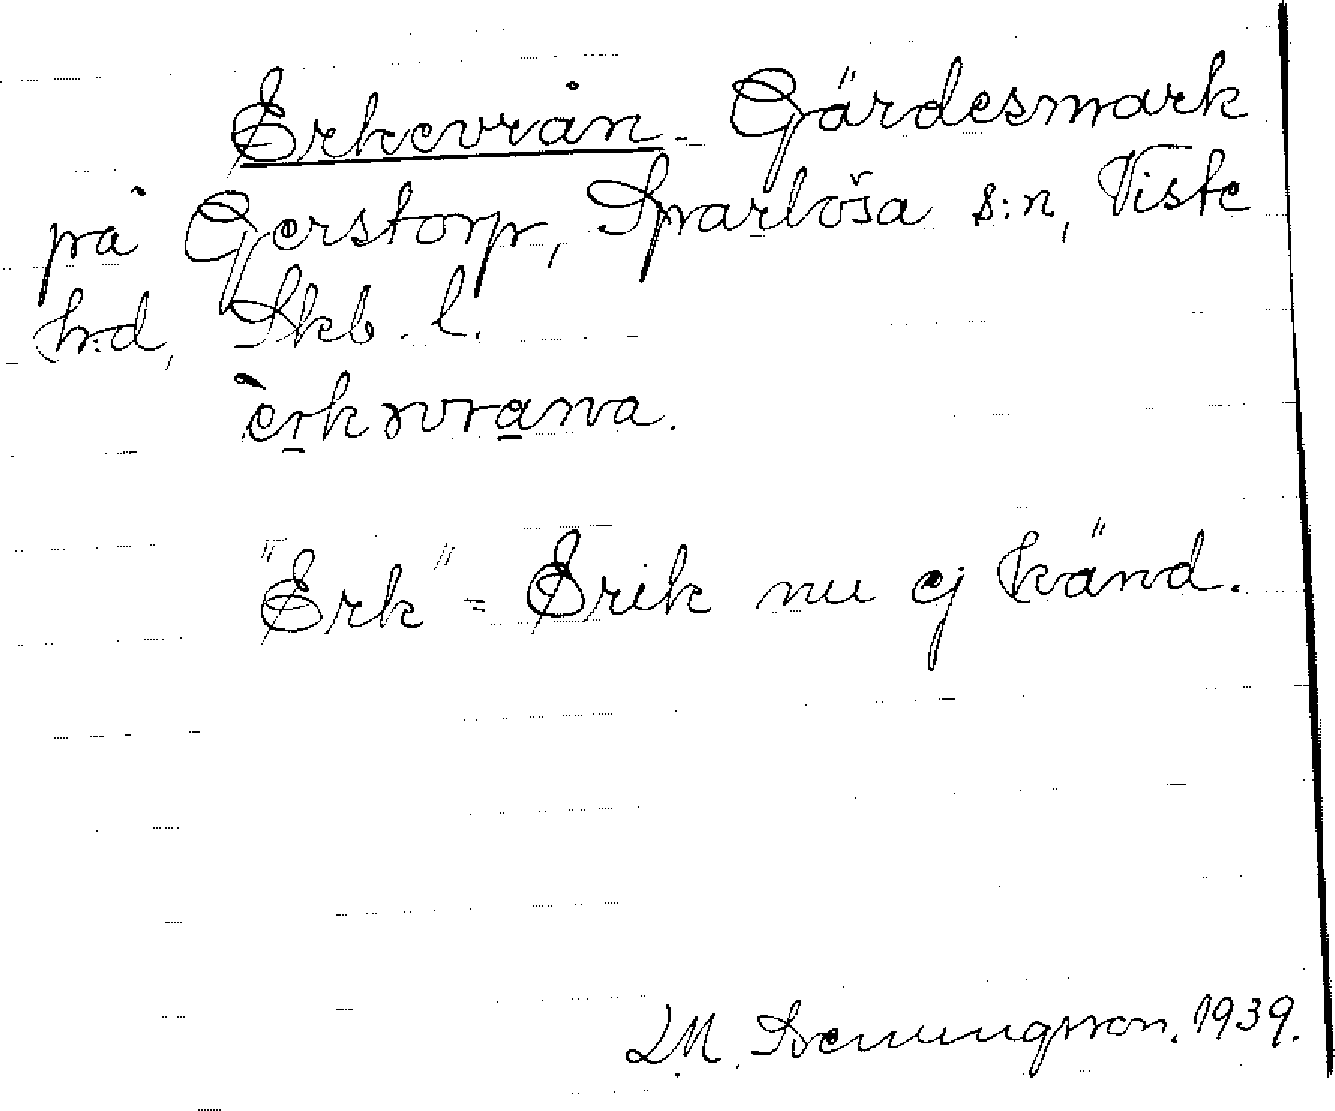 Erkevrån - Gärdesmark
på Gerstorp, Sparlösa s:n, Viste
h:d, Skb. l.
"Erk" = Erik nu ej känd.
1939.